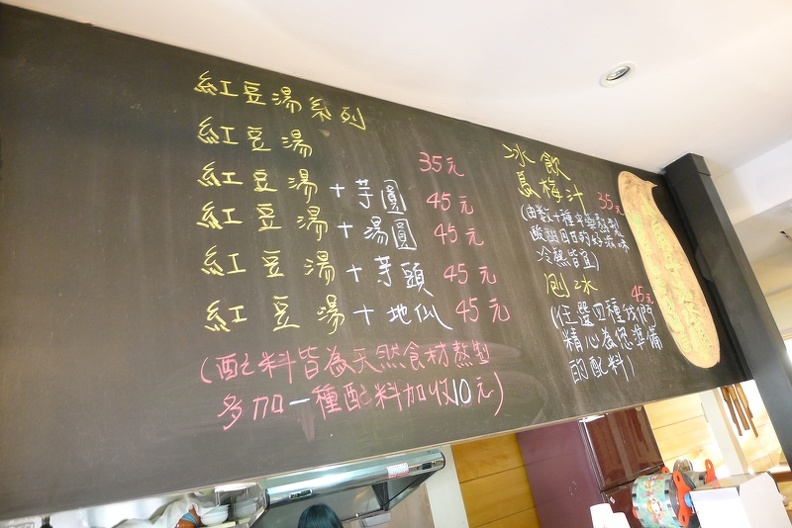 紅豆湯系列
紅豆湯 35元
紅豆湯+芋圓 45元
紅豆湯+湯圓 45元
紅豆湯+芋頭 45元
紅豆湯+地瓜 45元
(配料皆為天然食材熬製
多加一種配料加收10元)
冰飲
烏梅汁 35元
(由數十種中藥熬製
酸甜回甘的好滋味
冷熱皆宜)
刨冰 45元
(任選四種我們
精心為您準備
的配料)